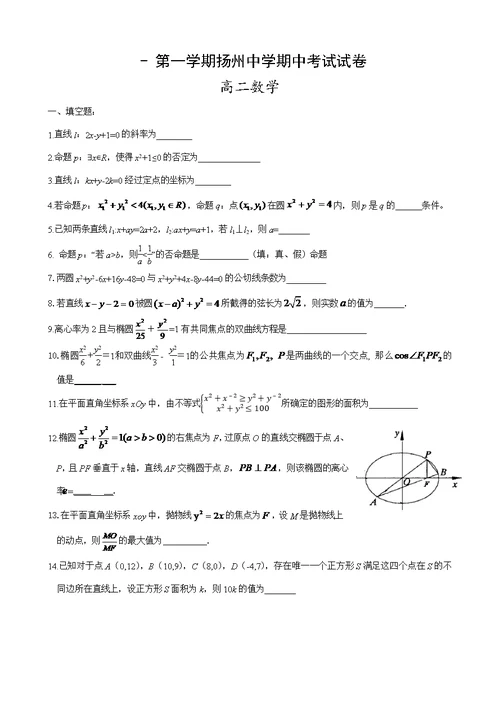 - 第一学期扬州中学期中考试试卷
高二数学
一、填空题:
1.直线l:2x-y+1=0的斜率为________
2.命题p:∃x∈R,使得x²+1≤0的否定为______________
3.直线l:kx+y-2k=0经过定点的坐标为________
4.若命题p:x₁²+y₁²<4(x₁,y₁∈R),命题q:点(x₁,y₁)在圆x²+y²=4内,则p是q的______条件。
5.已知两条直线l₁:x+ay=2a+2,l₂:ax+y=a+1,若l₁⊥l₂,则a=_______
6. 命题p:“若a>b,则1/a<1/b”的否命题是___________(填:真、假)命题
7.两圆x²+y²-6x+16y-48=0与x²+y²+4x-8y-44=0的公切线条数为_________
8.若直线x-y-2=0被圆(x-a)²+y²=4所截得的弦长为2√2,则实数a的值为_______.
9.离心率为2且与椭圆x²/25+y²/9=1有共同焦点的双曲线方程是__________________
10.椭圆x²/6+y²/2=1和双曲线x²/3-y²/1=1的公共焦点为F₁,F₂,P是两曲线的一个交点,那么cos∠F₁PF₂的
值是_________
11.在平面直角坐标系xOy中,由不等式{x²+x⁻²≥y²+y⁻²
x²+y²≤100 所确定的图形的面积为___________
12.椭圆x²/a²+y²/b²=1(a>b>0)的右焦点为F,过原点O的直线交椭圆于点A、
P,且PF垂直于x轴,直线AF交椭圆于点B,PB⊥PA,则该椭圆的离心
率e=_________.
y
P
B
O
F
x
A
13.在平面直角坐标系xoy中,抛物线y²=2x的焦点为F,设M是抛物线上
的动点,则MO/MF的最大值为__________.
14.已知对于点A(0,12),B(10,9),C(8,0),D(-4,7),存在唯一一个正方形S满足这四个点在S的不
同边所在直线上,设正方形S面积为k,则10k的值为_______